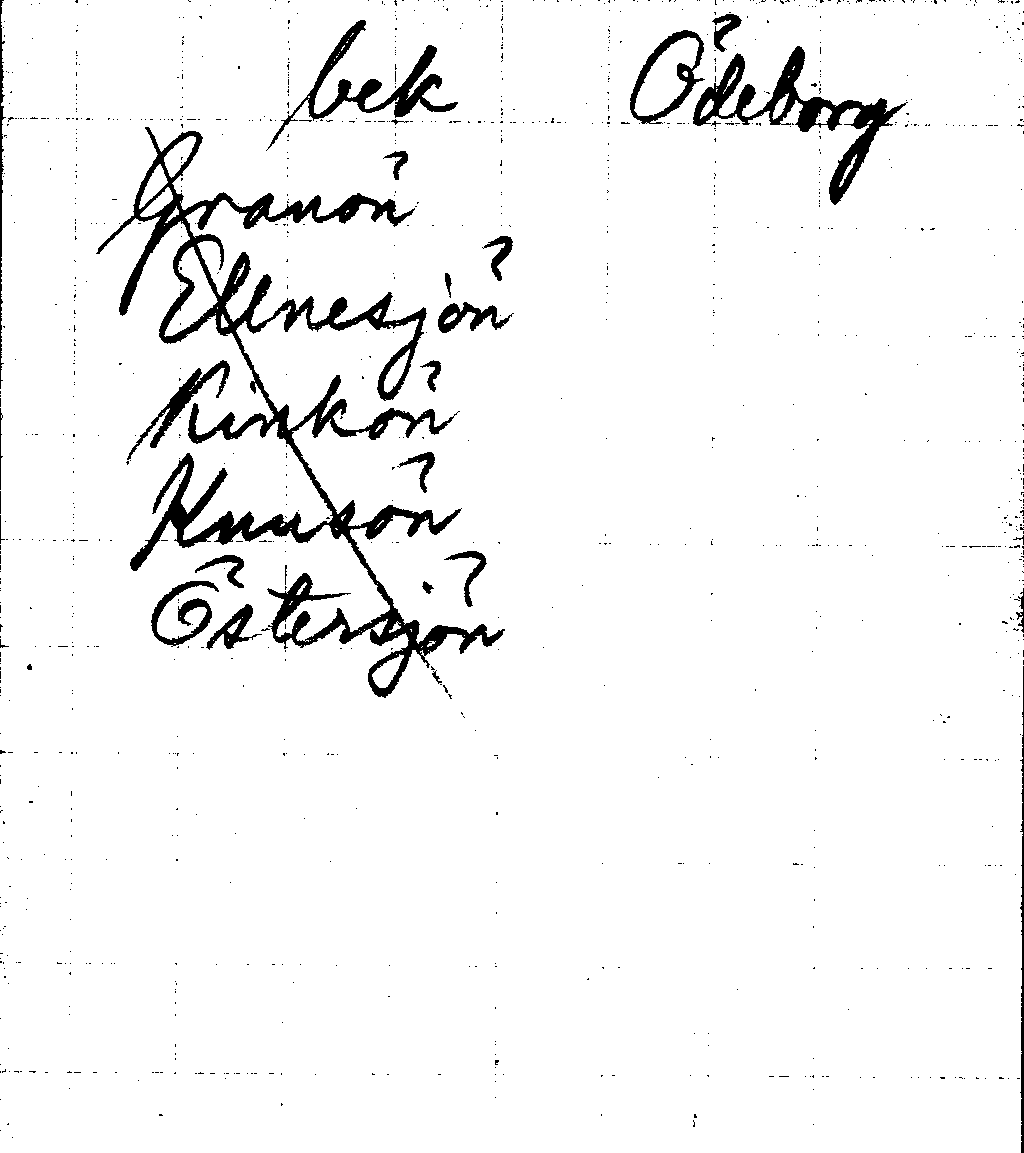 bek Ödeborg
Granön
Ellnesjön
Rinkön
Knusön
Östersjön